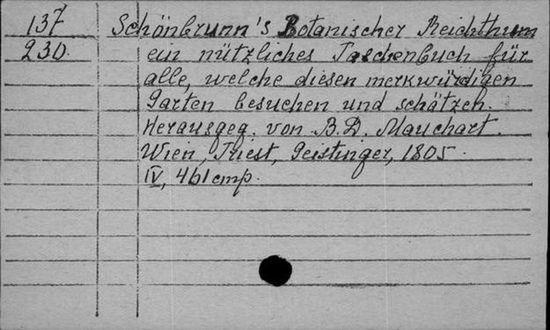 137 Schönbrunn's Botanischer Reichthum
230. ein nützliches Taschenbuch für
alle, welche diesen merkwürdigen
Garten besuchen und schätzen.
Herausgeg. von B.D. Mauchart.
Wien, Triest, Geistinger, 1805.
IV, 461 стр.